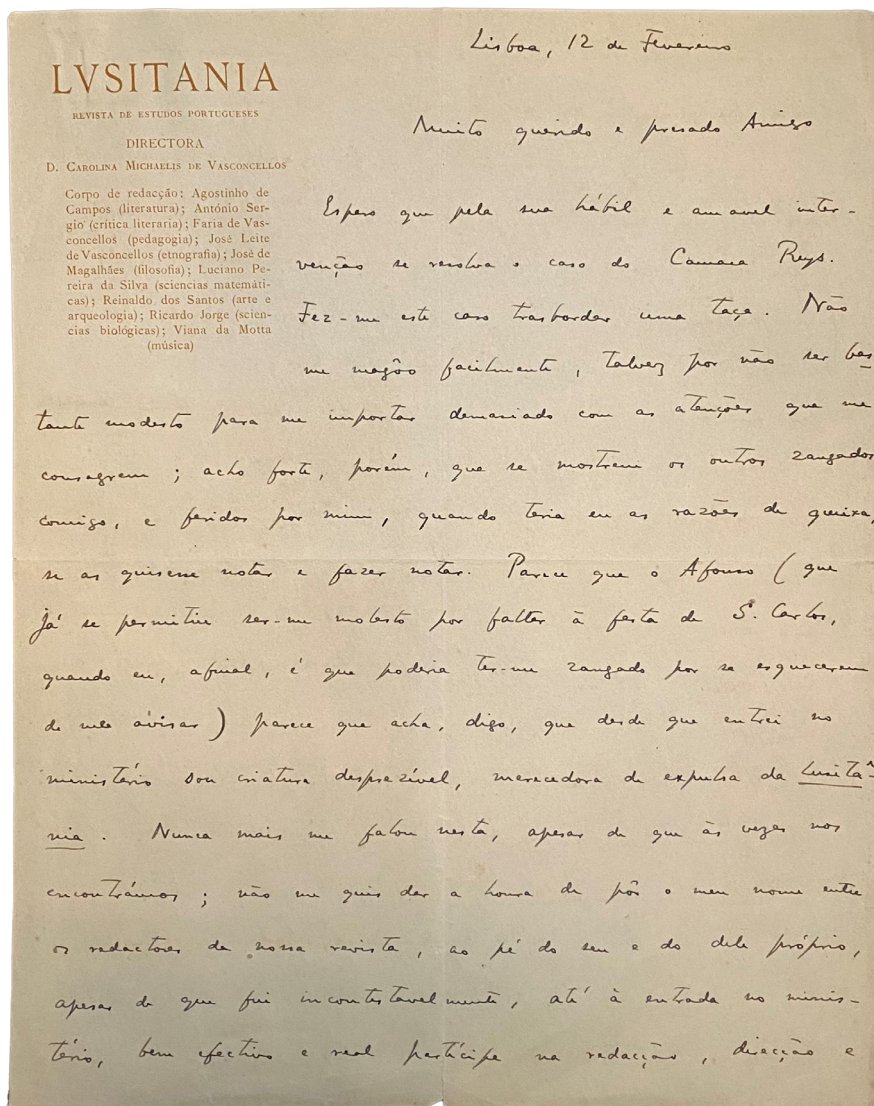 LVSITANIA
REVISTA DE ESTUDOS PORTUGUESES
DIRECTORA
D. CAROLINA MICHAELIS DE VASCONCELLOS
Corpo de redacção; Agostinho de
Campos (literatura); António Ser-
gio (crítica literaria); Faria de Vas-
concellos (pedagogia); José Leite
de Vasconcellos (etnografia); José de
Magalhães (filosofia); Luciano Pe-
reira da Silva (sciencias matemáti-
cas); Reinaldo dos Santos (arte e
arqueologia); Ricardo Jorge (scien-
cias biológicas); Viana da Motta
(música)
Lisboa, 12 de Fevereiro
Muito querido e presado Amigo
Espero que pela sua hábil e amavel inter-
venção se resolva o caso do Camara Reys.
Fez-me este caso trasbordar uma taça. Não
me magôo facilmente, talvez por não ser bas
tante modesto para me importar demasiado com as atenções que me
consagrem; acho forte, porém, que se mostrem os outros zangados
comigo, e feridos por mim, quando teria eu as razões de queixa,
se as quisesse notar e fazer notar. Parece que o Afonso (que
já se permitiu ser-me molesto por faltar à festa de S. Carlos,
quando eu, afinal, é que poderia ter-me zangado por se esquecerem
de me avisar) parece que acha, digo, que desde que entrei no
ministério sou criatura desprezível, merecedora de expulsa da Lusitâ-
nia. Nunca mais me falou nesta, apesar de que às vezes nos
encontrámos; não me quis dar a honra de pôr o meu nome entre
os redactores da nossa revista, ao pé do seu e do dele próprio,
apesar de que fui incontestavelmente, até à entrada no minis-
tério, bem efectivo e real partícipe na redacção, direcção e